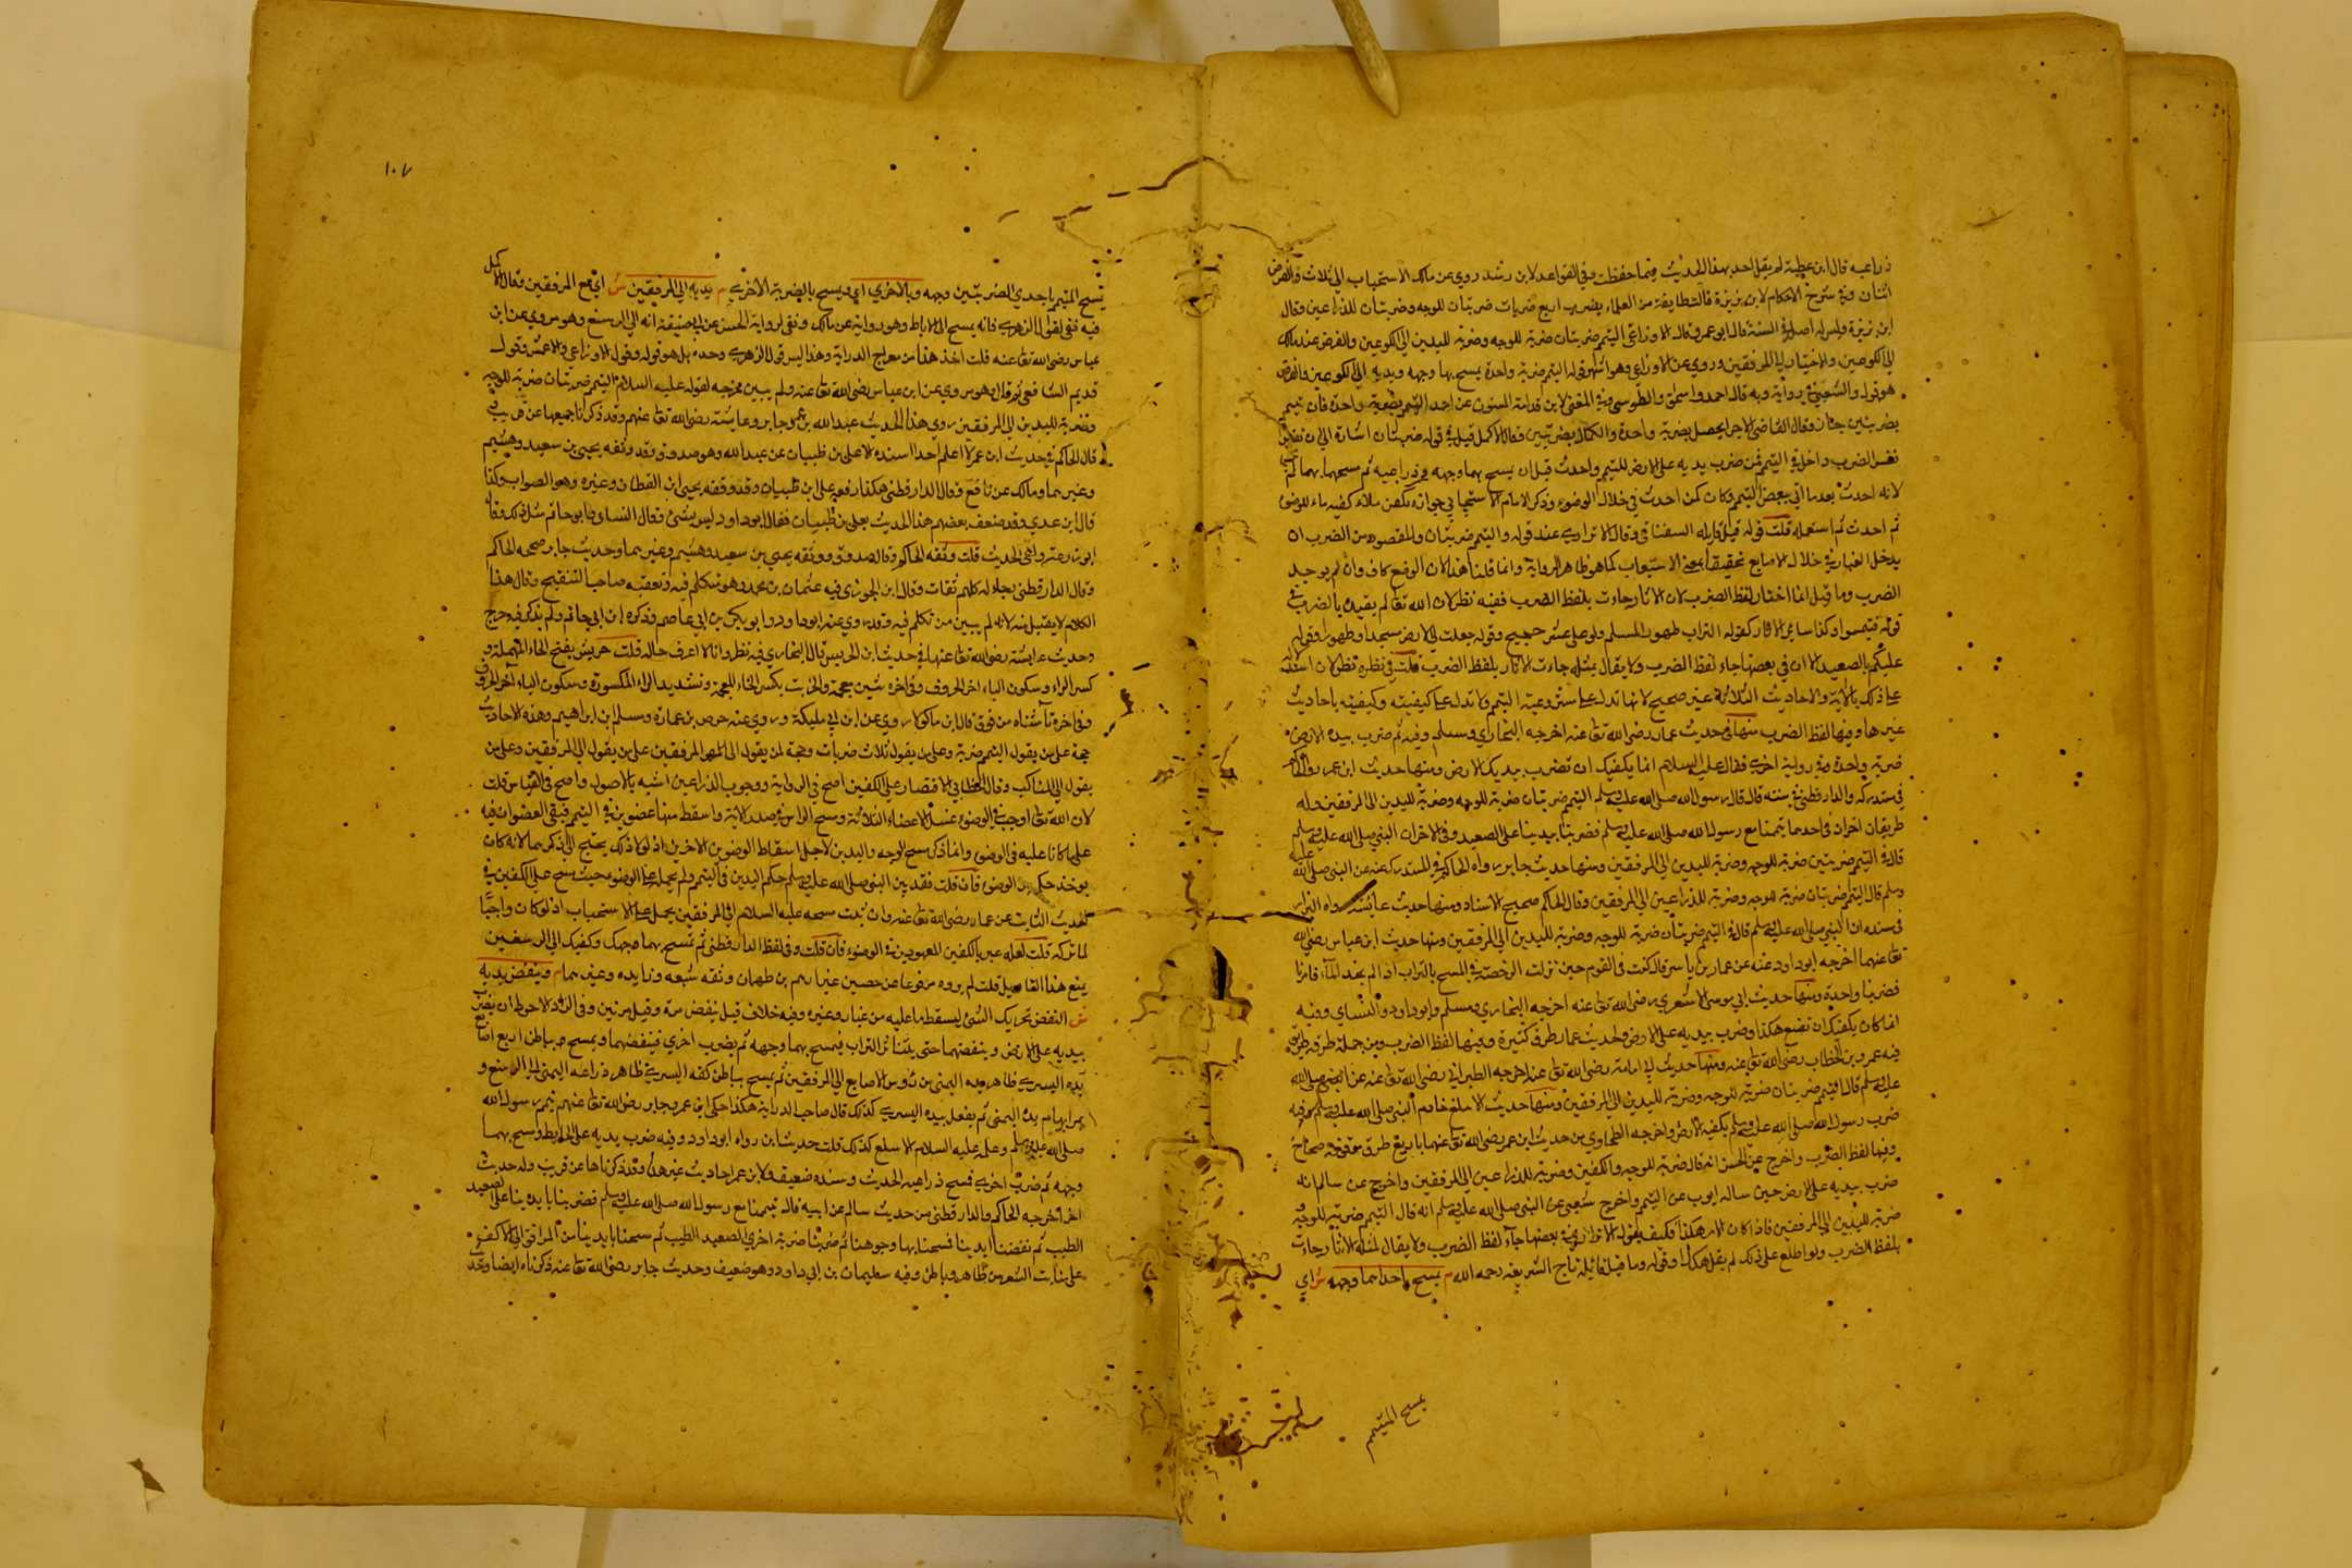 ذراعيه قال ابن عطية لم يقل احد بهذا الحديث فيما حفظت وفي القواعد لابن رشد روي عن مالك الاستحباب الى ثلاث والفرض
اثنتان وفي شرح الاحكام لابن بزيزة قالت طايفة من العلماء يضرب اربع ضربات ضربتان للوجه وضربتان للذراعين وقال
ابن بزيزة وليس له اصل في السنة قال ابو عمر وقال الاوزاعي التيمم ضربتان ضربة للوجه وضربة لليدين الى الكوعين والفرض عند مالك
الى الكوعين والاختيار الى المرفقين وروي عن الاوزاعي وهو اشهر قوليه التيمم ضربة واحدة يمسح بها وجهه ويديه الى الكوعين
هو قول والشعبي في رواية وبه قال احمد واسحق والطوسي وفي المغني لابن قدامة المسنون عن احمد التيمم بضربة واحدة فان تيمم
بضربتين جاز وقال القاضي الاجزا يحصل بضربة واحدة والكمال بضربتين وقال الاكمل قيل في قوله ضربتان اشارة الى ان
نفس الضرب داخل في التيمم فمن ضرب يديه على الارض للتيمم واحدث قبل ان يمسح بهما وجهه وذراعيه ثم مسحهما بهما لم
لانه احدث بعد ما اتى ببعض التيمم وكان كمن احدث في خلال الوضوء وذكر الامام الاسبيجابي جوازه كمن ملأ كفيه ماء للوضوء
ثم احدث ثم استعمله قلت قوله قيل قايله السغناقي وقال الاترازي عند قوله والتيمم ضربتان والمقصود من الضرب ان
يدخل الغبار في خلال الاصابع تحقيقا لمعنى الاستيعاب كما هو ظاهر الرواية وانما قلنا هذا لان الوضع كاف وان لم يوجد
الضرب وما قيل انما اختار لفظ الضرب لان الاثار جاءت بلفظ الضرب ففيه نظر لان الله تعالى لم يقيده بالضرب في
قوله فتيمموا وكذا سائر الاثار كقوله التراب طهور المسلم ولو الى عشر حجيج وقوله جعلت لي الارض مسجدا وطهورا وقوله
عليكم بالصعيد الا ان في بعضها جاء لفظ الضرب ولا يقال بمثله جاءت الاثار بلفظ الضرب قلت في نظره نظر لان استدلاله
على ذلك بالاية والاحاديث الثلاثة غير صحيح لانها تدل على مشروعية التيمم ولا تدل على كيفيته وكيفيته باحاديث
غيرها وفيها لفظ الضرب منها في حديث عمار رضى الله تعالى عنه اخرجه البخاري ومسلم وفيه ثم ضرب بيده الارض
ضربة واحدة وفي رواية اخرى فقال عليه السلام انما يكفيك ان تضرب بيديك الارض ومنها حديث ابن عمر رواه الحاكم
في مستدركه والدارقطني في سننه قال قال رسول الله صلى الله عليه وسلم التيمم ضربتان ضربة للوجه وضربة لليدين الى المرفقين وله
طريقان اخران في احدهما تيممنا مع رسول الله صلى الله عليه وسلم فضربنا بيدينا على الصعيد وفي الاخر ان النبي صلى الله عليه وسلم
قال في التيمم ضربتين ضربة للوجه وضربة لليدين الى المرفقين ومنها حديث جابر رواه الحاكم في المستدرك عنه عن النبي صلى الله عليه
وسلم قال التيمم ضربتان ضربة للوجه وضربة للذراعين الى المرفقين وقال الحاكم صحيح الاسناد ومنها حديث عائشة رواه البزار
في مسنده ان النبي صلى الله عليه وسلم قال في التيمم ضربتان ضربة للوجه وضربة لليدين الى المرفقين ومنها حديث ابن عباس رضى الله
تعالى عنهما اخرجه ابو داود عنه عن عمار بن ياسر قال كنت في القوم حين نزلت الرخصة في المسح بالتراب اذا لم نجد الماء فامرنا
فضربنا واحدة ومنها حديث ابي موسى الاشعري رضى الله تعالى عنه اخرجه البخاري ومسلم وابو داود والنسائي وفيه
انما كان يكفيك ان تصنع هكذا وضرب بيديه على الارض ولحديث عمار طرق كثيرة وفيها لفظ الضرب ومن جملة طرقه طريق
فيه عمر وبن الخطاب رضى الله تعالى عنه ومنها حديث ابي امامة رضى الله تعالى عنه اخرجه الطبراني رضى الله تعالى عنه عن النبي صلى الله
عليه وسلم قال التيمم ضربتان ضربة للوجه وضربة لليدين الى المرفقين ومنها حديث الاسلع خادم النبي صلى الله عليه وسلم وفيه
ضرب رسول الله صلى الله عليه وسلم بكفيه الارض واخرجه الطحاوي من حديث ابن عمر رضى الله تعالى عنهما باربع طرق موقوفه صحاح
وفيها لفظ الضرب واخرج عن الحسن انه قال ضربة للوجه والكفين وضربة للذراعين الى المرفقين واخرج عن سالم انه
ضرب بيديه على الارض حين ساله ايوب عن التيمم واخرج شعبي عن النبي صلى الله عليه وسلم انه قال التيمم ضربة للوجه و
ضربة لليدين الى المرفقين فاذا كان الامر هكذا فكيف يقول الاترازي في بعضها جاء لفظ الضرب ولا يقال لمثله الاثار جاءت
بلفظ الضرب ولو اطلع على ذلك لم يقل هكذا وقوله وما قيل قائله تاج الشريعة رحمه الله م يمسح باحداهما وجهه ش اي
يمسح المتيمم
١٠٧
يمسح المتيمم باحدى الضربتين وجهه وبالاخرى اي ويمسح بالضربة الاخرى م يديه الى المرفقين ش اي مع المرفقين وقال الاكمل
فيه نفى لقول الزهري فانه يمسح الى الاباط وهو رواية عن مالك ونفي لرواية الحسن عن ابي حنيفة انه الى الرسغ وهو مروي عن ابن
عباس رضى الله تعالى عنه قلت اخذ هذا من معراج الدراية وهذا ليس قول الزهري وحده بل هو قوله وقول الاوزاعي والاعمش وقول
قديم الشافعي ثم قال وهو مروي عن ابن عباس رضى الله تعالى عنه ولم يبين مخرجه لقوله عليه السلام التيمم ضربتان ضربة للوجه
وضربة لليدين الى المرفقين روى هذا الحديث عبد الله بن عمر وجابر وعايشة رضى الله تعالى عنهم وقد ذكرنا جميعها عن قريب
قال الحاكم في حديث ابن عمر لا اعلم احدا اسنده الا علي بن ظبيان عن عبيد الله وهو صدوق وقد وثقه يحيى بن سعيد وهشيم
وغيرهما ومالك عن نافع وقال الدارقطني هكذا رفعه علي بن ظبيان وقد وقفه يحيى ابن القطان وغيره وهو الصواب وكذا
قال ابن عدي وقد ضعف بعضهم هذا الحديث بعلي بن ظبيان فقال ابو داود ليس بشئ وقال النسائي وابو حاتم متروك وقال
ابو زرعة واهي الحديث قلت وثقه الحاكم وقال صدوق ووثقه يحيى بن سعيد وهشيم وغيرهما وحديث جابر صححه الحاكم
وقال الدارقطني رجاله كلهم ثقات وقال ابن الجوزي فيه عثمان بن محمد وهو متكلم فيه وتعقبه صاحب التنقيح وقال هذا
الكلام لا يقبل منه لانه لم يبين من تكلم فيه وقد روى عنه ابو داود وابو بكر بن ابي عاصم وذكره ابن ابي حاتم ولم يذكر فيه جرح
وحديث عايشة رضى الله تعالى عنها في حديث ابن الحريش قال البخاري فيه نظر وانا لا اعرف حاله قلت حريش بفتح الحاء المهملة و
كسر الراء وسكون الياء اخر الحروف وفي اخره شين معجمة والخريت بكسر الخاء المعجمة وتشديد الراء المكسورة وسكون الياء آخر الحروف
وفي اخره تاء مثناة من فوق قال ابن ماكولا روى عن ابن ابي مليكة وروى عنه حرمي بن عمارة ومسلم ابن ابراهيم وهذه الاحاديث
حجة على من يقول التيمم ضربة وعلى من يقول ثلاث ضربات وحجة لمن يقول الى المرفقين على من يقول الى المرفقين وعلى من
يقول الى المناكب وقال الخطابي الاقتصار على الكفين اصح في الرواية ووجوب الذراعين اشبه بالاصول واصح في القياس قلت
لان الله تعالى اوجب في الوضوء غسل الاعضاء الثلاثة ومسح الراس في صدر الاية واسقط منها عضوين في التيمم فبقي العضوان فيه
على ما كانا عليه في الوضوء وانما ذكر مسح الوجه واليدين لاجل اسقاط العضوين الاخرين اذ لولا ذلك يحتج الى ذكرهما لانه كان
يوخذ حكمه من الوضوء فان قلت فقد بين النبي صلى الله عليه وسلم حكم اليدين في التيمم ولم يحمل على الوضوء حيث مسح على الكفين في
الحديث الثابت عن عمار رضى الله تعالى عنه وان ثبت مسحه عليه السلام الى المرفقين يحمل على الاستحباب اذ لو كان واجبا
لما تركه قلت لعله عبر بالكفين للمعهودين في الوضوء فان قلت وفي لفظ الدارقطني ثم تمسح بهما وجهك وكفيك الى الرسغين
يمنع هذا التاويل قلت لم يروه مرفوعا عن حصين غير ابراهيم بن طهمان ووثقه شعبة وزايده وغيرهما م وينفض يديه
ش النفض تحريك الشئ ليسقط ما عليه من غبار وغيره وفيه خلاف قيل ينفض مرة وقيل مرتين وفي الزاد الاحوط ان يضرب
بيديه على الارض وينفضهما حتى يتناثر التراب فيمسح بهما وجهه ثم يضرب اخرى فينفضهما ويمسح بباطن اربع اصابع
يده اليسرى ظاهر يده اليمنى من رؤس الاصابع الى المرفقين ثم يمسح بباطن كفه اليسرى ظاهر ذراعه اليمنى الى الرسغ و
يمر ابهام يده اليمنى ثم يفعل بيده اليسرى كذلك قال صاحب الدراية هكذا حكى ابن عمر وجابر رضى الله تعالى عنهم تيمم رسول الله
صلى الله عليه وسلم وعلمه عليه السلام الاسلع كذلك قلت حديث ابن رواه ابو داود وفيه ضرب يديه على الحايط ومسح بهما
وجهه ثم ضرب اخرى فمسح ذراعيه الحديث وسنده ضعيف ولابن عمر احاديث غير هذا وقد ذكرناها عن قريب وله حديث
اخر اخرجه الحاكم والدارقطني من حديث سالم عن ابيه قال تيممنا مع رسول الله صلى الله عليه وسلم فضربنا بايدينا على الصعيد
الطيب ثم نفضنا ايدينا فمسحنا بها وجوهنا ثم ضربنا ضربة اخرى الصعيد الطيب ثم مسحنا بايدينا من المرافق الى الاكف
على منابت الشعر من ظاهر وباطن وفيه سليمان بن ابي داود وهو ضعيف وحديث جابر رضى الله تعالى عنه ذكرناه ايضا